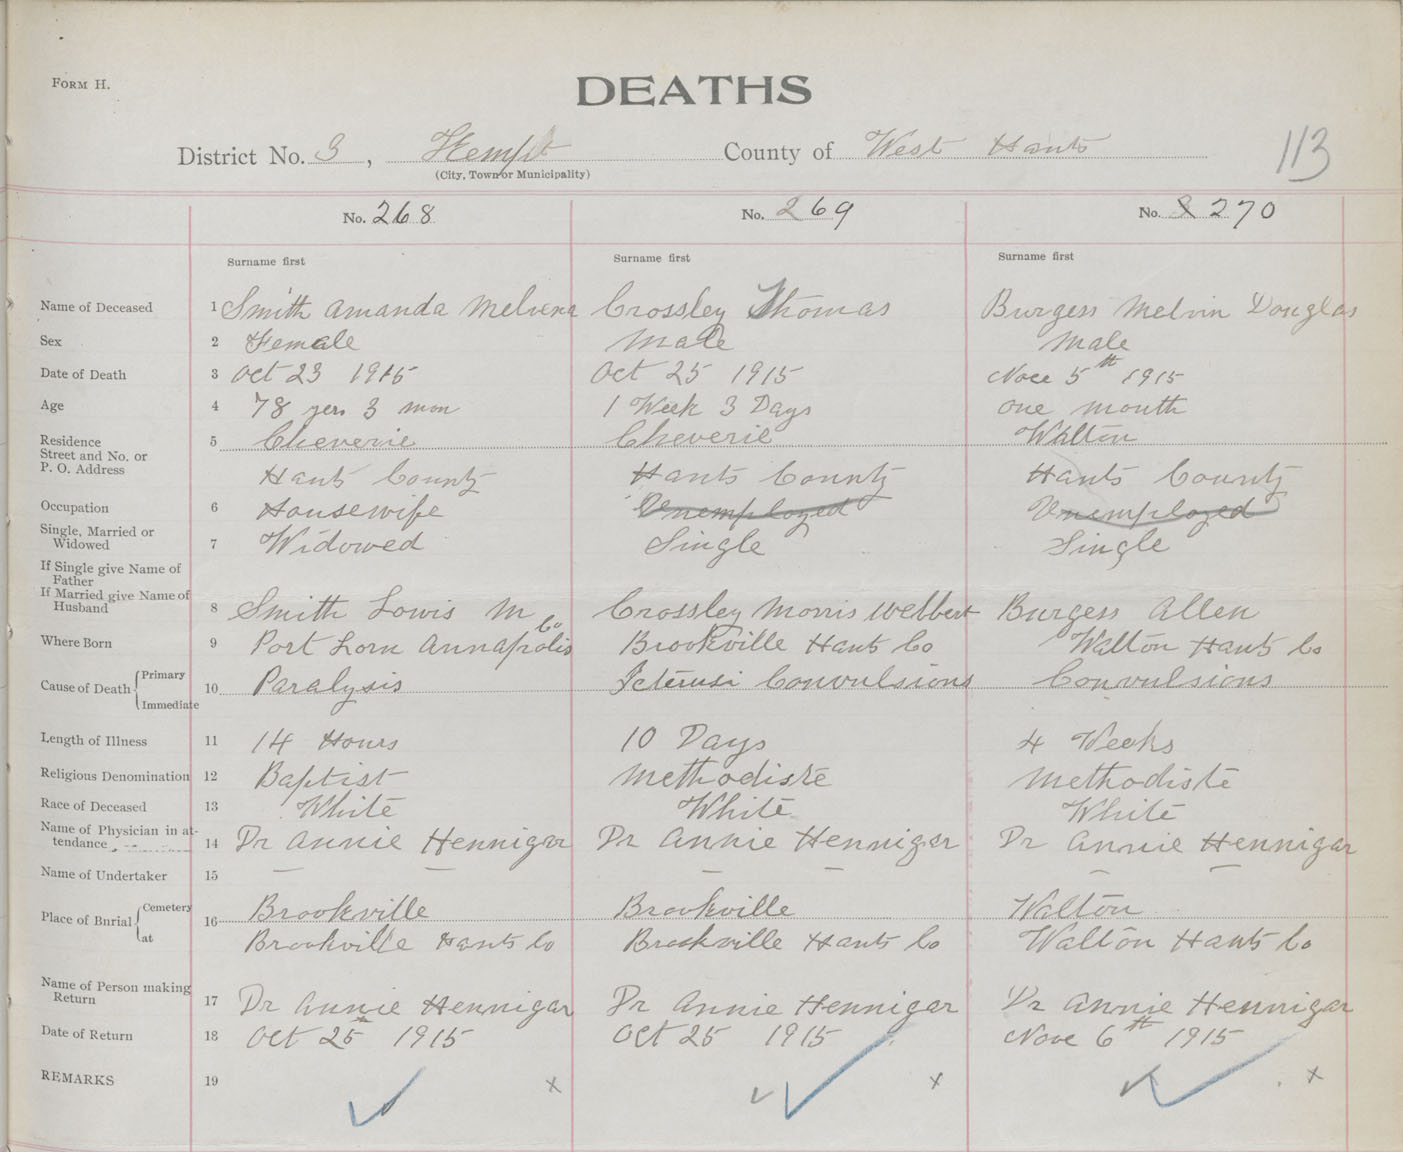 FORM H.
DEATHS
113
District No. 3, Kempt County of West Hants
(City, Town or Municipality)
No. 268 No. 269 No. 270
Surname first Surname first Surname first
Name of Deceased 1 Smith Amanda Melvena Crossley Thomas Burgess Melvin Douglas
Sex 2 Female Male Male
Date of Death 3 Oct 23 1915 Oct 25 1915 Nove 5th 1915
Age 4 78 yers 3 mon 1 Week 3 Days one month
Residence 5 Cheverie Cheverie Walton
Street and No. or
P. O. Address Hants County Hants County Hants County
Occupation 6 Housewife Unemployed Unemployed
Single, Married or
Widowed 7 Widowed Single Single
If Single give Name of
Father
If Married give Name of
Husband 8 Smith Lowis M Crossley Morris Welbert Burgess Allen
Where Born 9 Port Lorn Annapolis Co Brookville Hants Co Walton Hants Co
Cause of Death Primary 10 Paralysis Convulsions Convulsions
Immediate
Length of Illness 11 14 Hours 10 Days 4 Weeks
Religious Denomination 12 Baptist Methodiste Methodiste
Race of Deceased 13 White White White
Name of Physician in at-
tendance 14 Dr Annie Hennigar Dr Annie Hennigar Dr Annie Hennigar
Name of Undertaker 15 — — — — — —
Place of Burial Cemetery 16 Brookville Brookville Walton
at Brookville Hants Co Brookville Hants Co Walton Hants Co
Name of Person making
Return 17 Dr Annie Hennigar Dr Annie Hennigar Dr Annie Hennigar
Date of Return 18 Oct 25 1915 Oct 25 1915 Nove 6th 1915
REMARKS 19 x x x